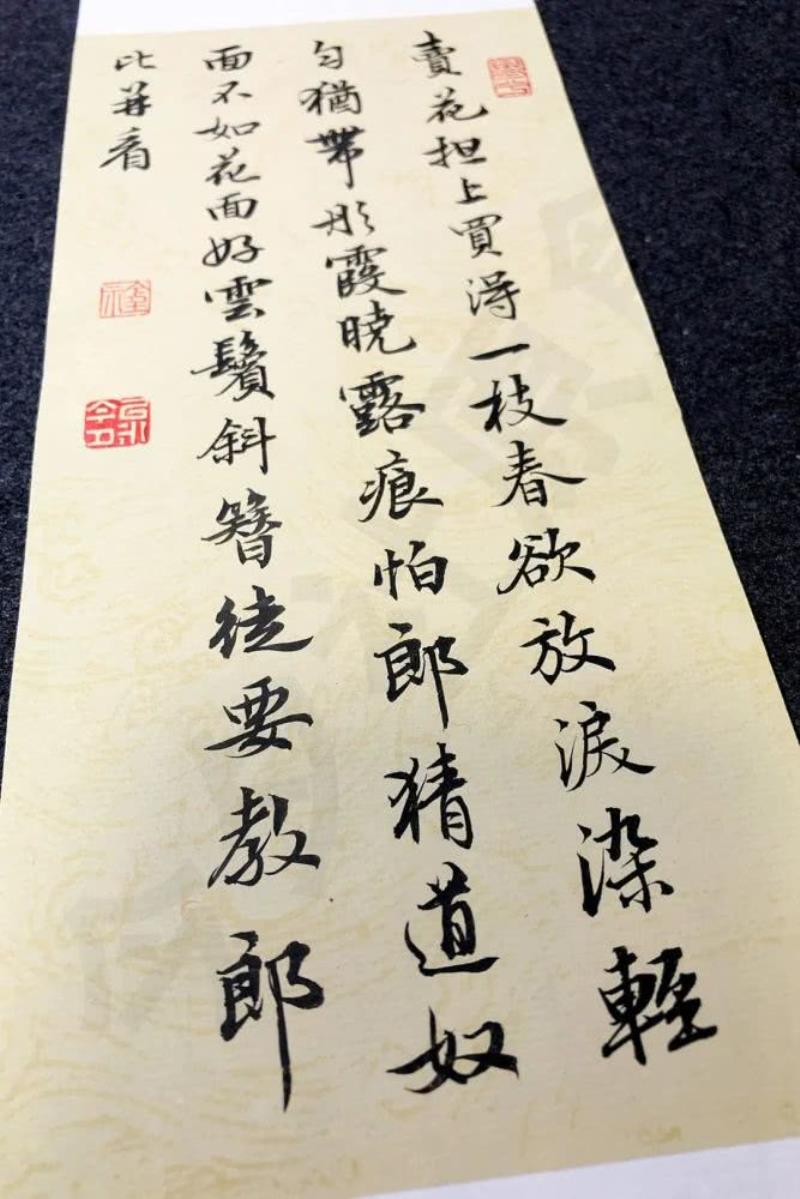 賣花担上買得一枝春欲放淚染輕
匀猶帶彤霞晓露痕怕郎猜道奴
面不如花面好雲鬢斜簪徒要教郎
比并看